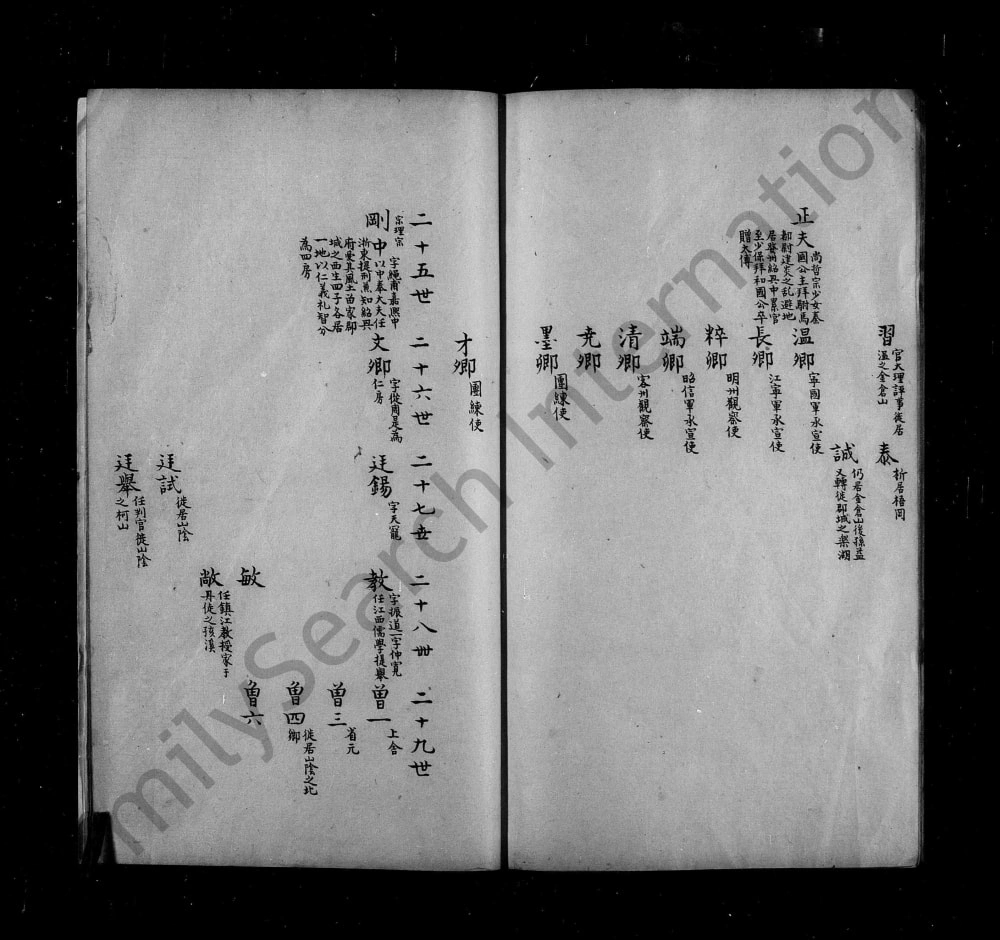 習
官大理評事徙居
溫之金倉山
泰
析居梧岡
誠
仍居金倉山後孫益
又轉徙郡城之梁湖
正夫
尚哲宗少女秦
國公主拜駙馬
都尉建炎之亂避地
居婺州紹興中累官
至少保拜和國公卒
贈太傅
溫卿
寧國軍承宣使
長卿
江寧軍承宣使
粹卿
明州觀察使
端卿
昭信軍承宣使
清卿
容州觀察使
尭卿
墨卿
團練使
才卿
團練使
二十五世
二十六世
二十七世
二十八世
二十九世
宗理宗
剛中
字繩甫嘉熙中
以中奉大夫任
浙東提刑兼知紹興
府愛其風土因家郡
城之西生四子各居
一地以仁義礼智分
為四房
文卿
字從周是為
仁房
廷錫
字天寵
教
字振道一字仲寬
任江西儒學提舉
曾一
上舍
曾三
省元
曾四
徙居山陰之北
鄉
敏
曾六
敞
任鎮江教授家于
丹徒之孩溪
廷試
徙居山陰
廷舉
任判官徙山陰
之柯山
milySearch Internation